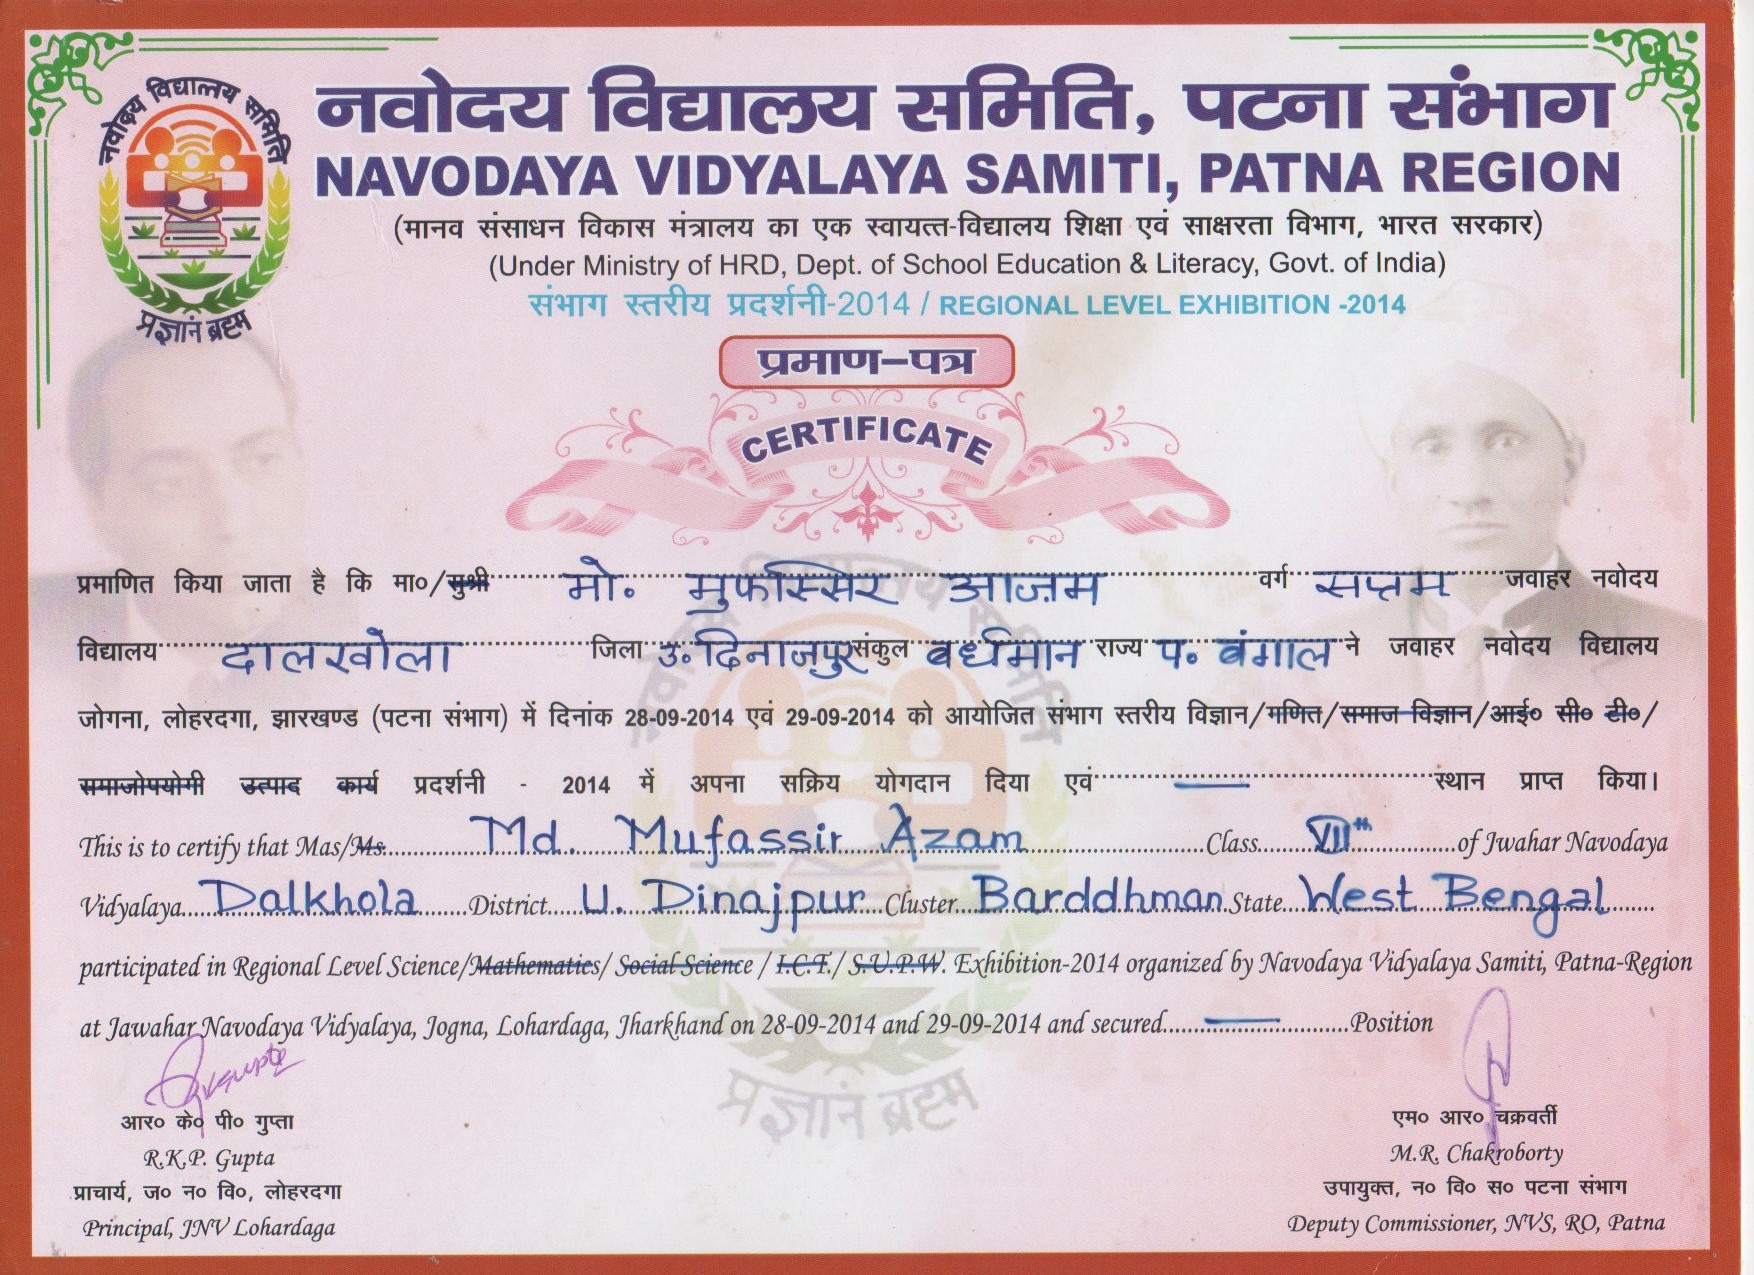 नवोदय विद्यालय समिति
प्रज्ञानं ब्रह्म
नवोदय विद्यालय समिति, पटना संभाग
NAVODAYA VIDYALAYA SAMITI, PATNA REGION
(मानव संसाधन विकास मंत्रालय का एक स्वायत्त-विद्यालय शिक्षा एवं साक्षरता विभाग, भारत सरकार)
(Under Ministry of HRD, Dept. of School Education & Literacy, Govt. of India)
संभाग स्तरीय प्रदर्शनी-2014 / REGIONAL LEVEL EXHIBITION -2014
प्रमाण-पत्र
CERTIFICATE
प्रमाणित किया जाता है कि मा०/सुश्री मो. मुफस्सिर आज़म वर्ग सप्तम जवाहर नवोदय
विद्यालय दालखोला जिला उ. दिनाजपुर संकुल बर्धमान राज्य प. बंगाल ने जवाहर नवोदय विद्यालय
जोगना, लोहरदगा, झारखण्ड (पटना संभाग) में दिनांक 28-09-2014 एवं 29-09-2014 को आयोजित संभाग स्तरीय विज्ञान/गणित/समाज विज्ञान/आई० सी० टी०/
समाजोपयोगी उत्पाद कार्य प्रदर्शनी - 2014 में अपना सक्रिय योगदान दिया एवं — स्थान प्राप्त किया।
This is to certify that Mas/Ms. Md. Mufassir Azam Class VIIth of Jwahar Navodaya
Vidyalaya Dalkhola District U. Dinajpur Cluster Barddhman State West Bengal
participated in Regional Level Science/Mathematics/ Social Science / I.C.T./ S.U.P.W. Exhibition-2014 organized by Navodaya Vidyalaya Samiti, Patna-Region
at Jawahar Navodaya Vidyalaya, Jogna, Lohardaga, Jharkhand on 28-09-2014 and 29-09-2014 and secured — Position
प्रज्ञानं ब्रह्म
आर० के० पी० गुप्ता
R.K.P. Gupta
प्राचार्य, ज० न० वि०, लोहरदगा
Principal, JNV Lohardaga
एम० आर० चक्रवर्ती
M.R. Chakroborty
उपायुक्त, न० वि० स० पटना संभाग
Deputy Commissioner, NVS, RO, Patna